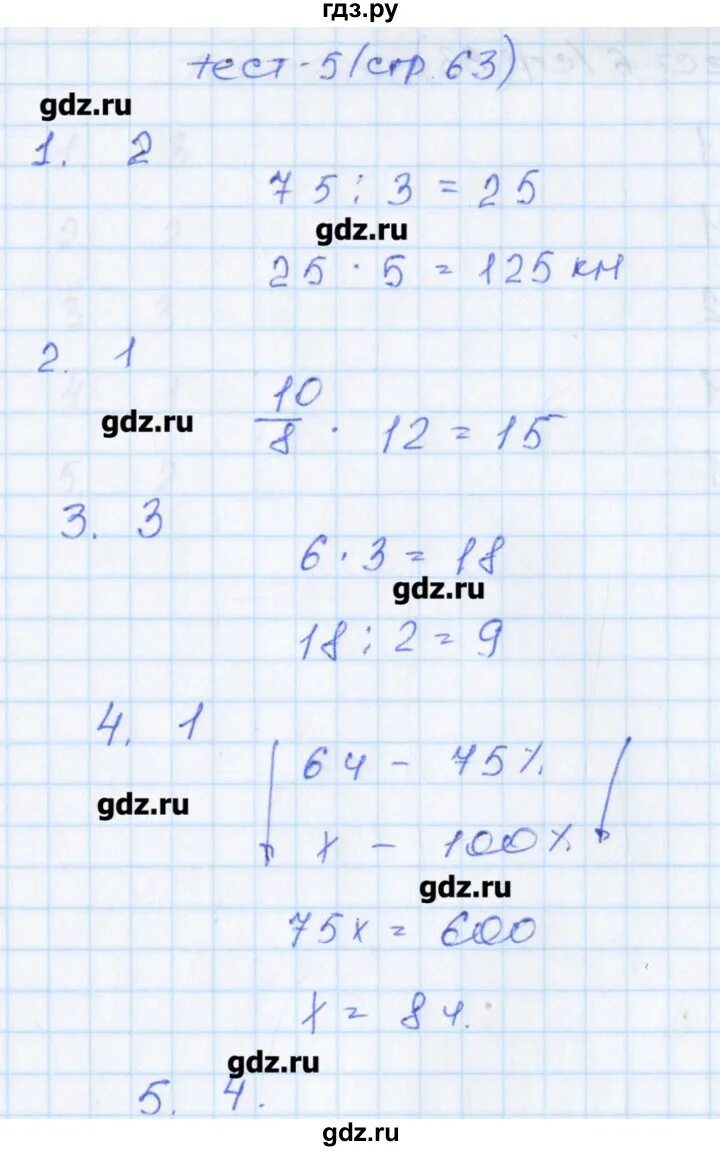 гдз.ру
тест-5 (стр. 63)
gdz.ru
1. 2
75 : 3 = 25
gdz.ru
25 · 5 = 125 км
2. 1
10/8 · 12 = 15
gdz.ru
3. 3
6 · 3 = 18
gdz.ru
18 : 2 = 9
4. 1
6ч - 75%
gdz.ru
x - 100%
gdz.ru
75x = 600
x = 8ч.
gdz.ru
5. 4.
gdz.ru